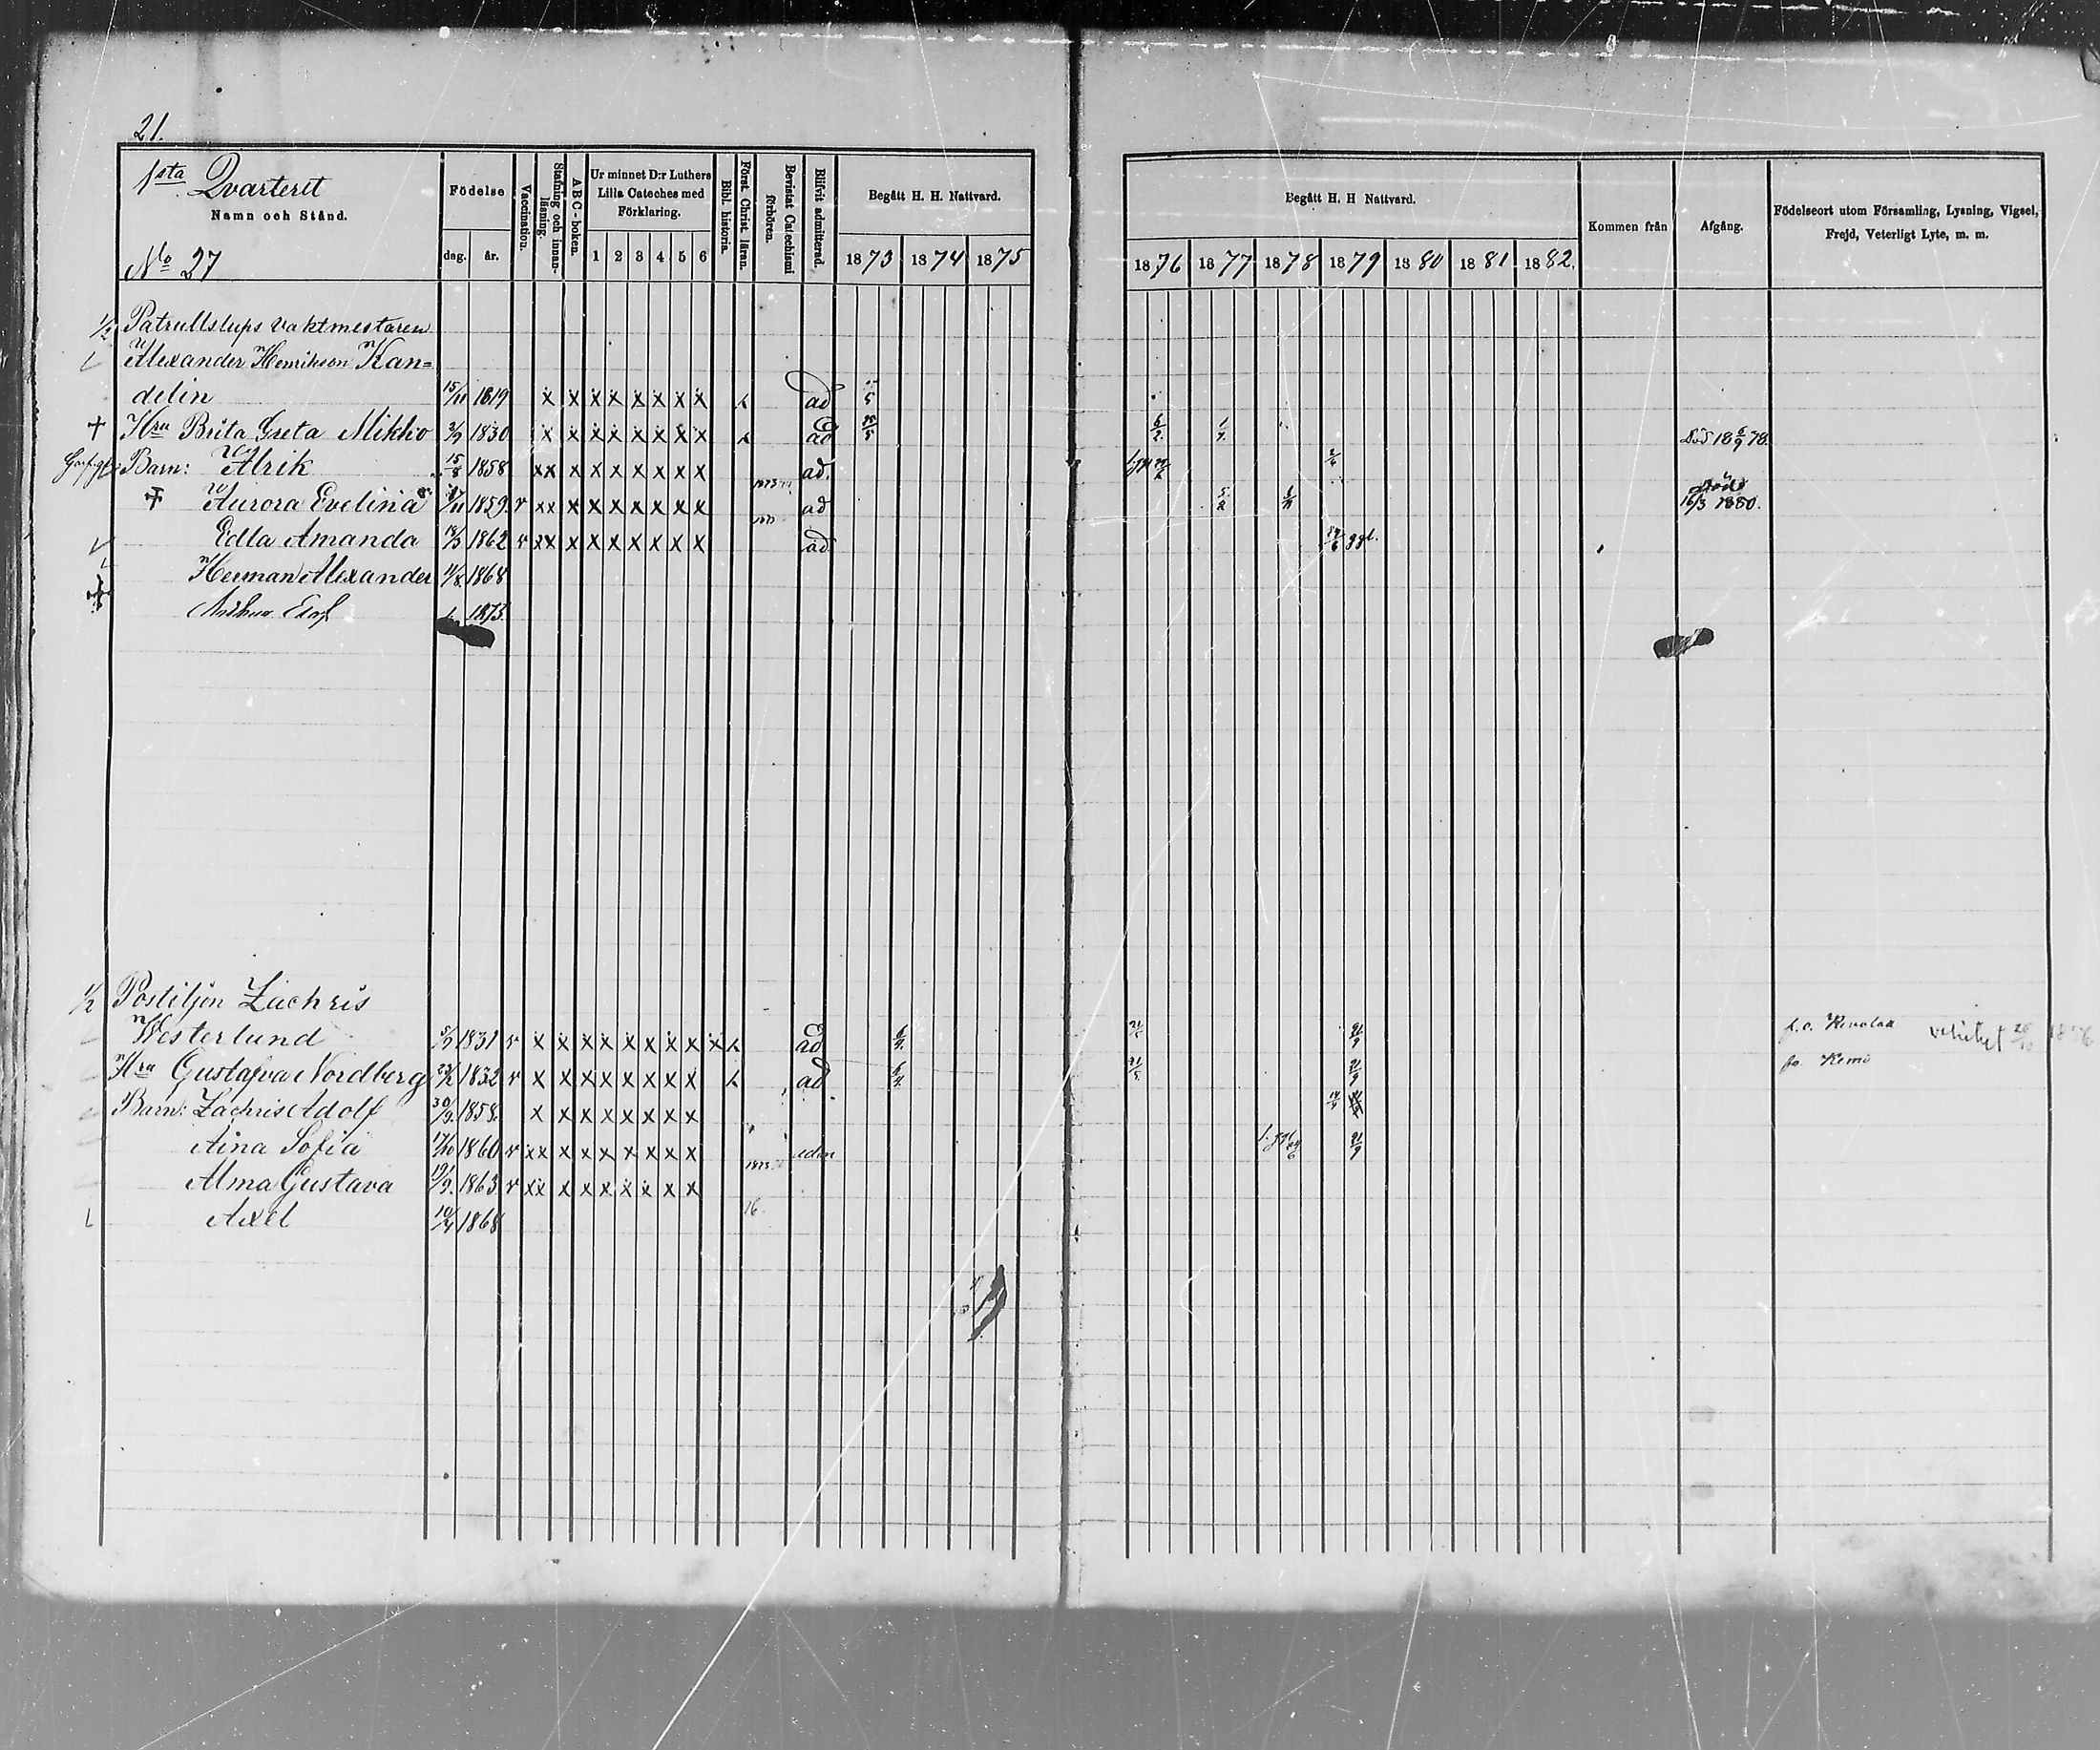 21.
1sta Qvarteret
Namn och Stånd.
No 27
Födelse
dag. år.
Vaccination.
Stafning och innanläsning.
ABC-boken.
Ur minnet D:r Luthers Lilla Cateches med Förklaring.
1 2 3 4 5 6
Bibl. historia.
Först. Christ. läran.
Bevistat Catechismi förhören.
Blifvit admitterad.
Begått H. H. Nattvard.
1873 1874 1875
Begått H. H Nattvard.
1876 1877 1878 1879 1880 1881 1882.
Kommen från
Afgång.
Födelseort utom Församling, Lysning, Vigsel, Frejd, Veterligt Lyte, m. m.
1/2 Patrullslups vaktmestaren
Alexander Henrikson Kan=
delin 15/11 1819 x x x x x x x x ad
+ Hru Brita Greta Mikko 2/9 1830 x x x x x x x x ad Död 18 6/9 78.
Barn: Alrik 15/8 1858 xx x x x x x x x ad.
+ Aurora Evelina 1859 v xx x x x x x x x ad Död 16/3 1880.
Edla Amanda 1862 v xx x x x x x x x ad
Herman Alexander 11/8 1868
1873.
1/2 Postiljon Zachris
Westerlund 5/7 1831 v x x x x x x x x x ad
Hru Gustafva Nordberg 1832 v x x x x x x x x ad fr. Kemi
Barn: Zachris Adolf 30/9. 1858. x x x x x x x x
Aina Sofia 17/10 1860 v xx x x x x x x x
Alma Gustava 19/9. 1863 v xx x x x x x x x
Axel 10/4 1868